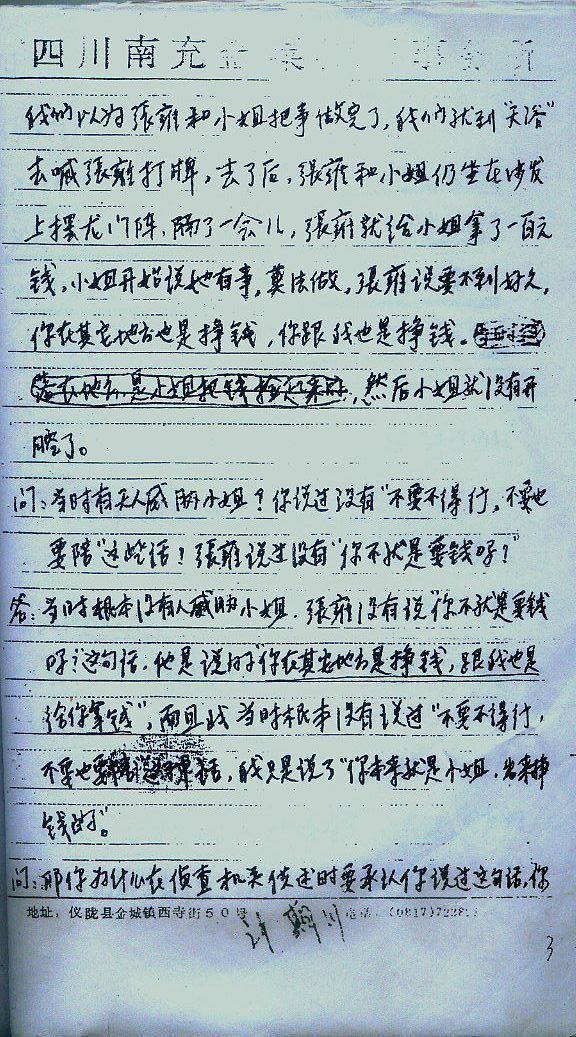 四川南充
我们以为張雍和小姐把事做完了,我们就到"天浴"
去喊張雍打牌,去了后,張雍和小姐仍坐在沙发
上摆龙门阵,隔了一会儿,張雍就给小姐拿了一百元
钱,小姐开始说她有事,莫法做,張雍说要不到好久,
你在其它地方也是挣钱,你跟我也是挣钱。
落在地上,是小姐把钱捡起来的,然后小姐就没有开
腔了。
问:当时有无人威胁小姐?你说过没有"不要不得行,不要也
要陪"这些话?張雍说过没有"你不就是要钱吗?"
答:当时根本没有人威胁小姐,張雍没有说"你不就是要钱
吗?"这句话,他是说的"你在其它地方是挣钱,跟我也是
给你拿钱",而且我当时根本没有说过"不要不得行,
不要也要 话,我只是说了"你本来就是小姐,出来挣
钱的"。
问:那你为什么在侦查机关供述时要承认你说过这句话,你
地址:仪陇县金城镇西寺街50号 电话:(0817)7228
3